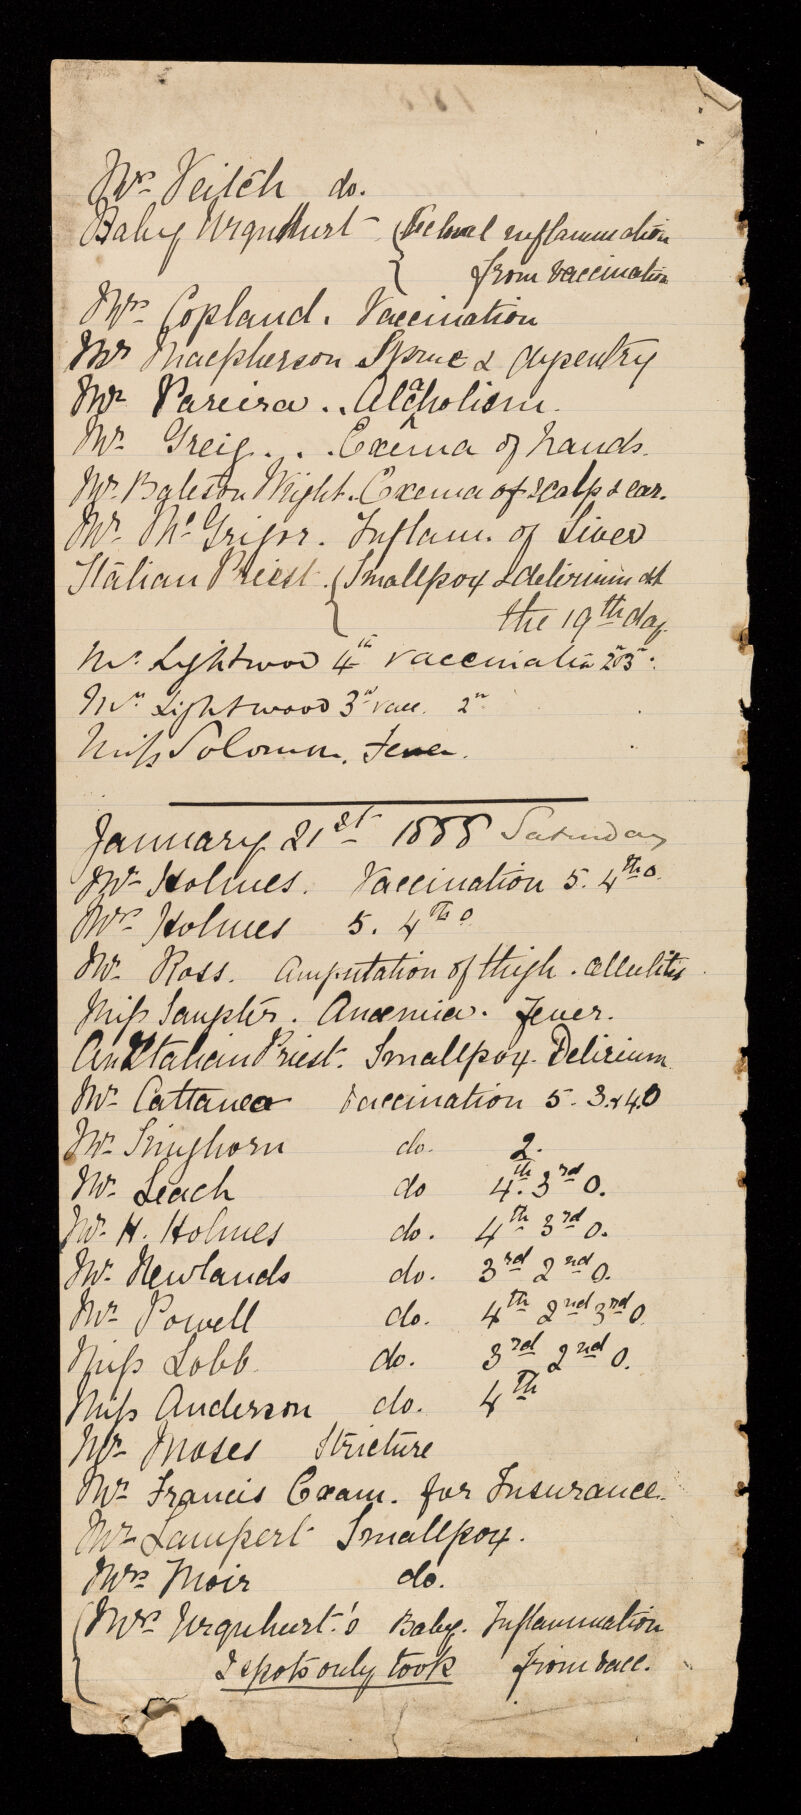 Mrs Veitch do.
Baby Urquhurt { inflammation
from vaccination
Mrs Copland. Vaccination
Mrs Macpherson Sprue & dysentry
Mr Pareira .. Alcaholism.
Mr. Greig . . . Exema of hands.
Mr. Bateson Wright. Exema of scalp & ear.
Mr. McGrigor. Inflam. of Liver
Italian Priest. { Smallpox & delirium at
the 19th day.
Mr. Lightwood 4th vaccination 2nd 3rd.
Mrs Lightwood 3rd vacc. 2nd
Miss Solomon. Fever.
January 21st 1888 Saturday
Mr Holmes. Vaccination 5. 4th 0.
Mrs Holmes 5. 4th 0
Mr. Ross. Amputation of thigh. cellulitis
Miss Sampter. Anæmia. Fever.
An Italian Priest. Smallpox. Delirium
Mr. Cattaneo Vaccination 5. 3. & 4. 0
Mr. Kinghorn do. 2.
Mr. Leach do 4th. 3rd 0.
Mr. H. Holmes do. 4th 3rd 0.
Mr. Newlands do. 3rd 2nd 0.
Mr. Powell do. 4th 2nd 3rd 0
Miss Lobb. do. 3rd 2nd 0.
Miss Anderson do. 4th
Mr. Moses Stricture
Mr. Francis Exam. for Insurance.
Mr Lampert Smallpox.
Mrs Moir do.
{ Mrs Urquhurt's Baby. Inflammation
2 spots only took from vacc.